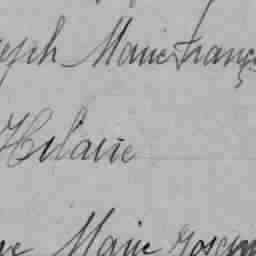 eph Marie Franç
Hilaire
Marie rosem